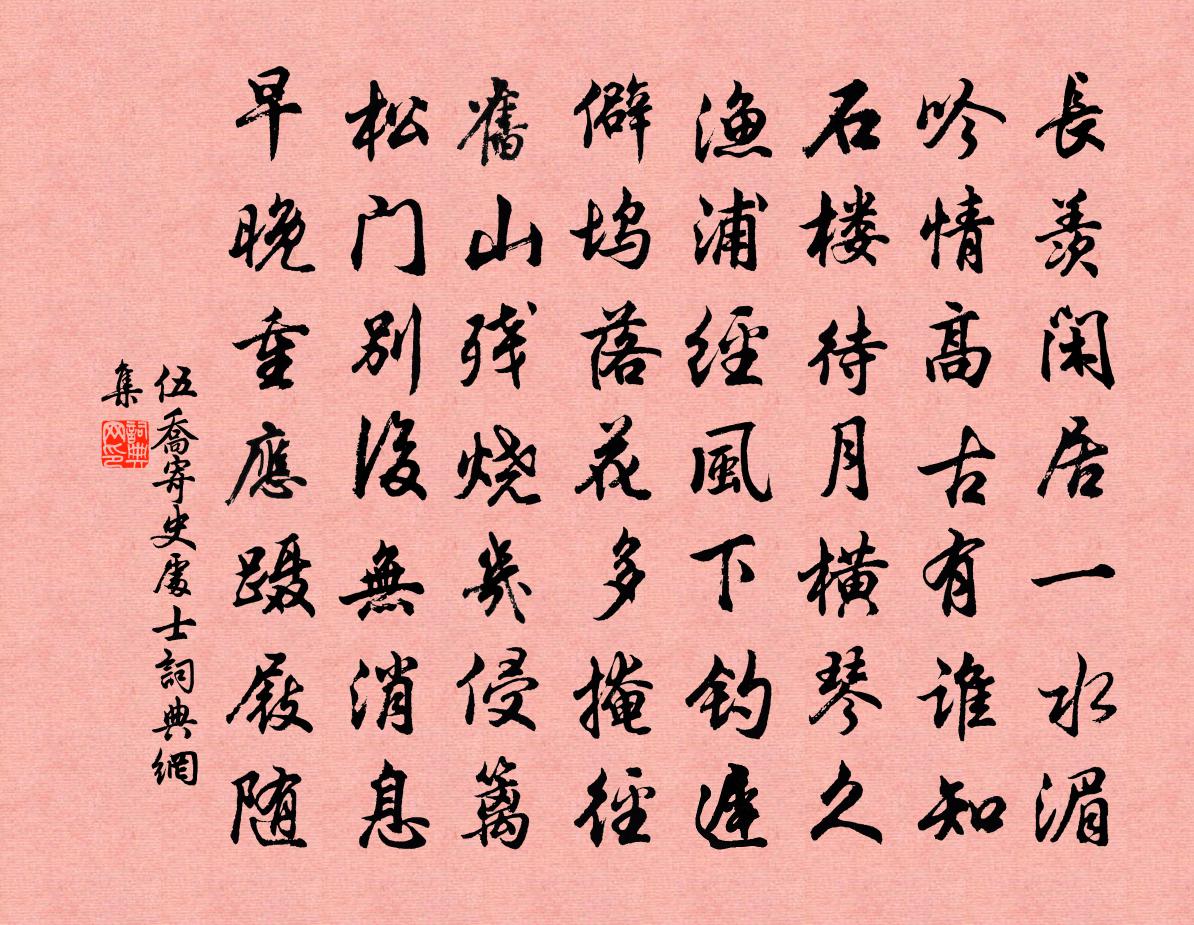 長羨閑居一水湄
吟情高古有誰知
石楼待月橫琴久
渔浦經風下釣遲
僻坞落花多掩徑
舊山残燒幾侵篱
松门别後無消息
早晚重應蹑屐随
伍喬寄史處士詞典網
集
詞典
网印